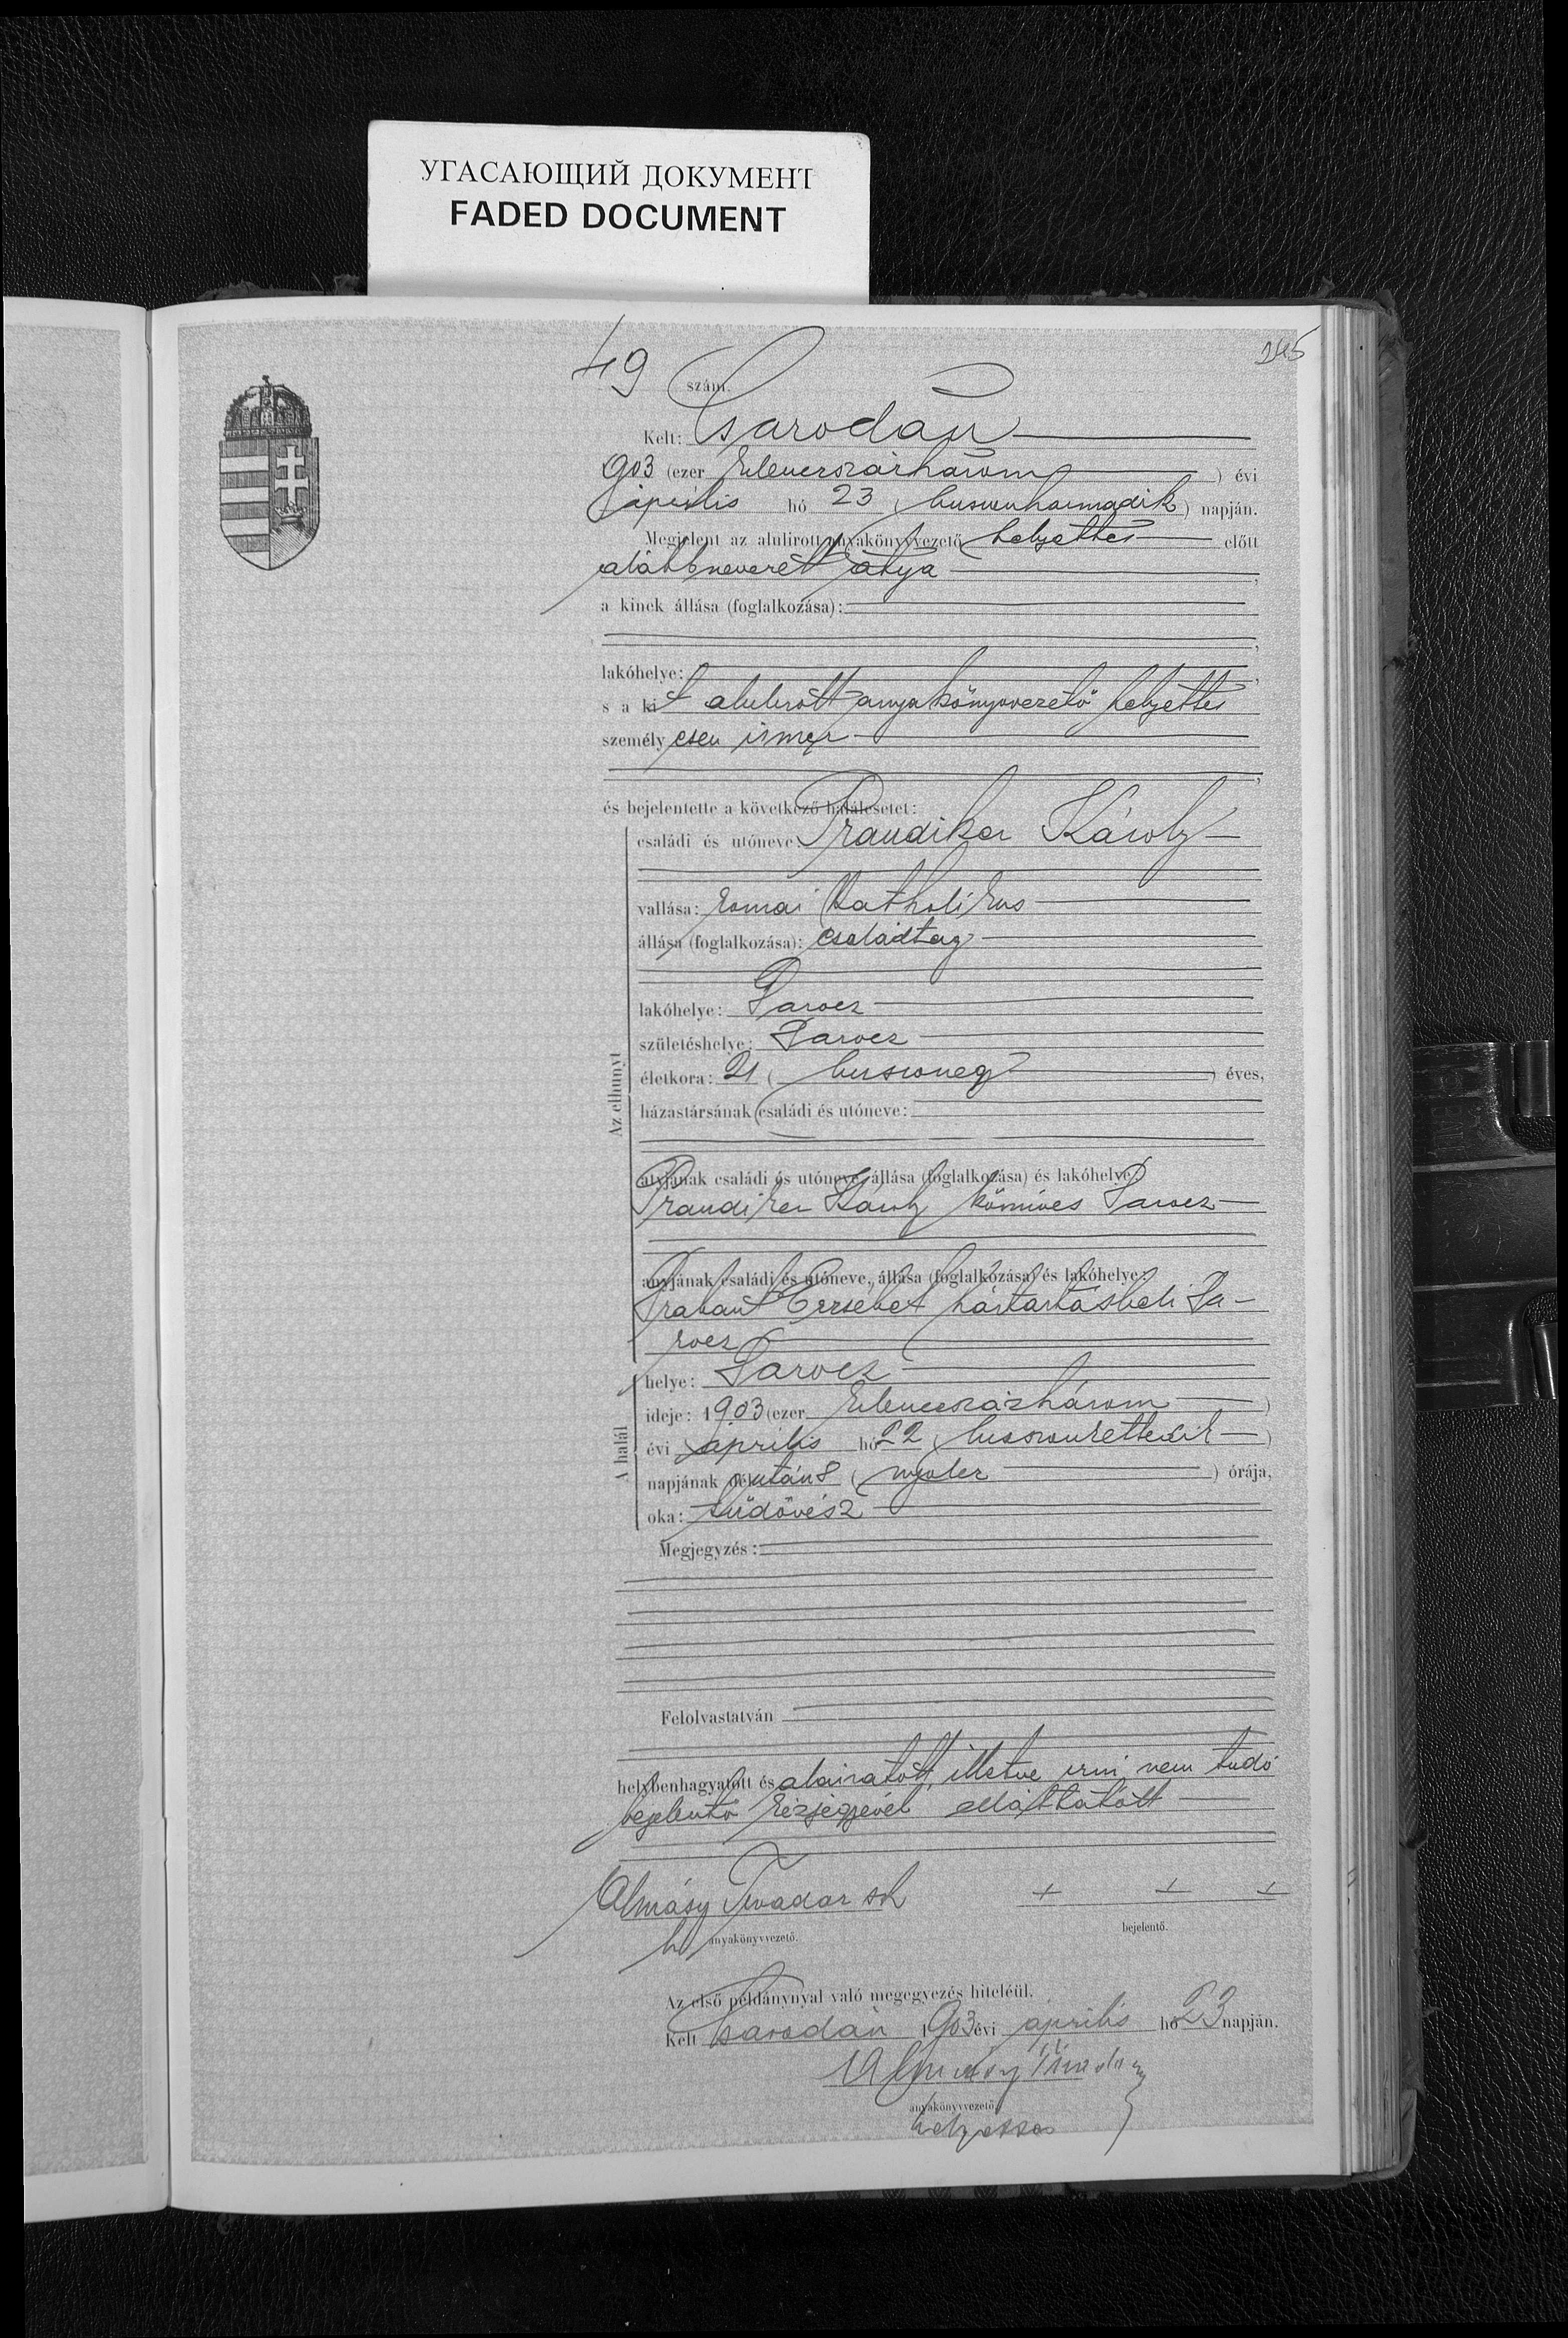 УГАСАЮЩИЙ ДОКУМЕНТ
FADED DOCUMENT
245
49 szám.
Kelt: Csarodán
903 (ezer kilenczszázhárom) évi
április hó 23 (huszonharmadik) napján.
Megjelent az alulirott anyakönyvvezető helyettes előtt
alább nevezett atya,
a kinek állása (foglalkozása):
lakóhelye:
s a kit alulirott anyakönyvvezető helyettes
személyesen ismer
és bejelentette a következő halálesetet:
Az elhunyt
családi és utóneve: Prandiker Károly
vallása: római katholikus
állása (foglalkozása): családtag
lakóhelye:
születéshelye:
életkora: 21 (huszonegy) éves,
házastársának családi és utóneve:
atyjának családi és utóneve, állása (foglalkozása) és lakóhelye:
Prandiker Károly kőmíves
anyjának családi és utóneve, állása (foglalkozása) és lakóhelye:
Erzsébet háztartásbeli
A halál
helye:
ideje: 1903 (ezer kilenczszázhárom)
évi április hó 22 (huszonkettedik)
napjának délután 8 (nyolcz) órája,
oka: tüdővész
Megjegyzés:
Felolvastatván
helybenhagyatott és aláiratott, illetve irni nem tudó
bejelentő kézjegyével elláttatott
Almásy Tivadar sk + + +
h anyakönyvvezető. bejelentő.
Az első példánynyal való megegyezés hiteléül.
Kelt Csarodán 1903 évi április hó 23 napján.
Almásy Tivadar
anyakönyvvezető
helyettes